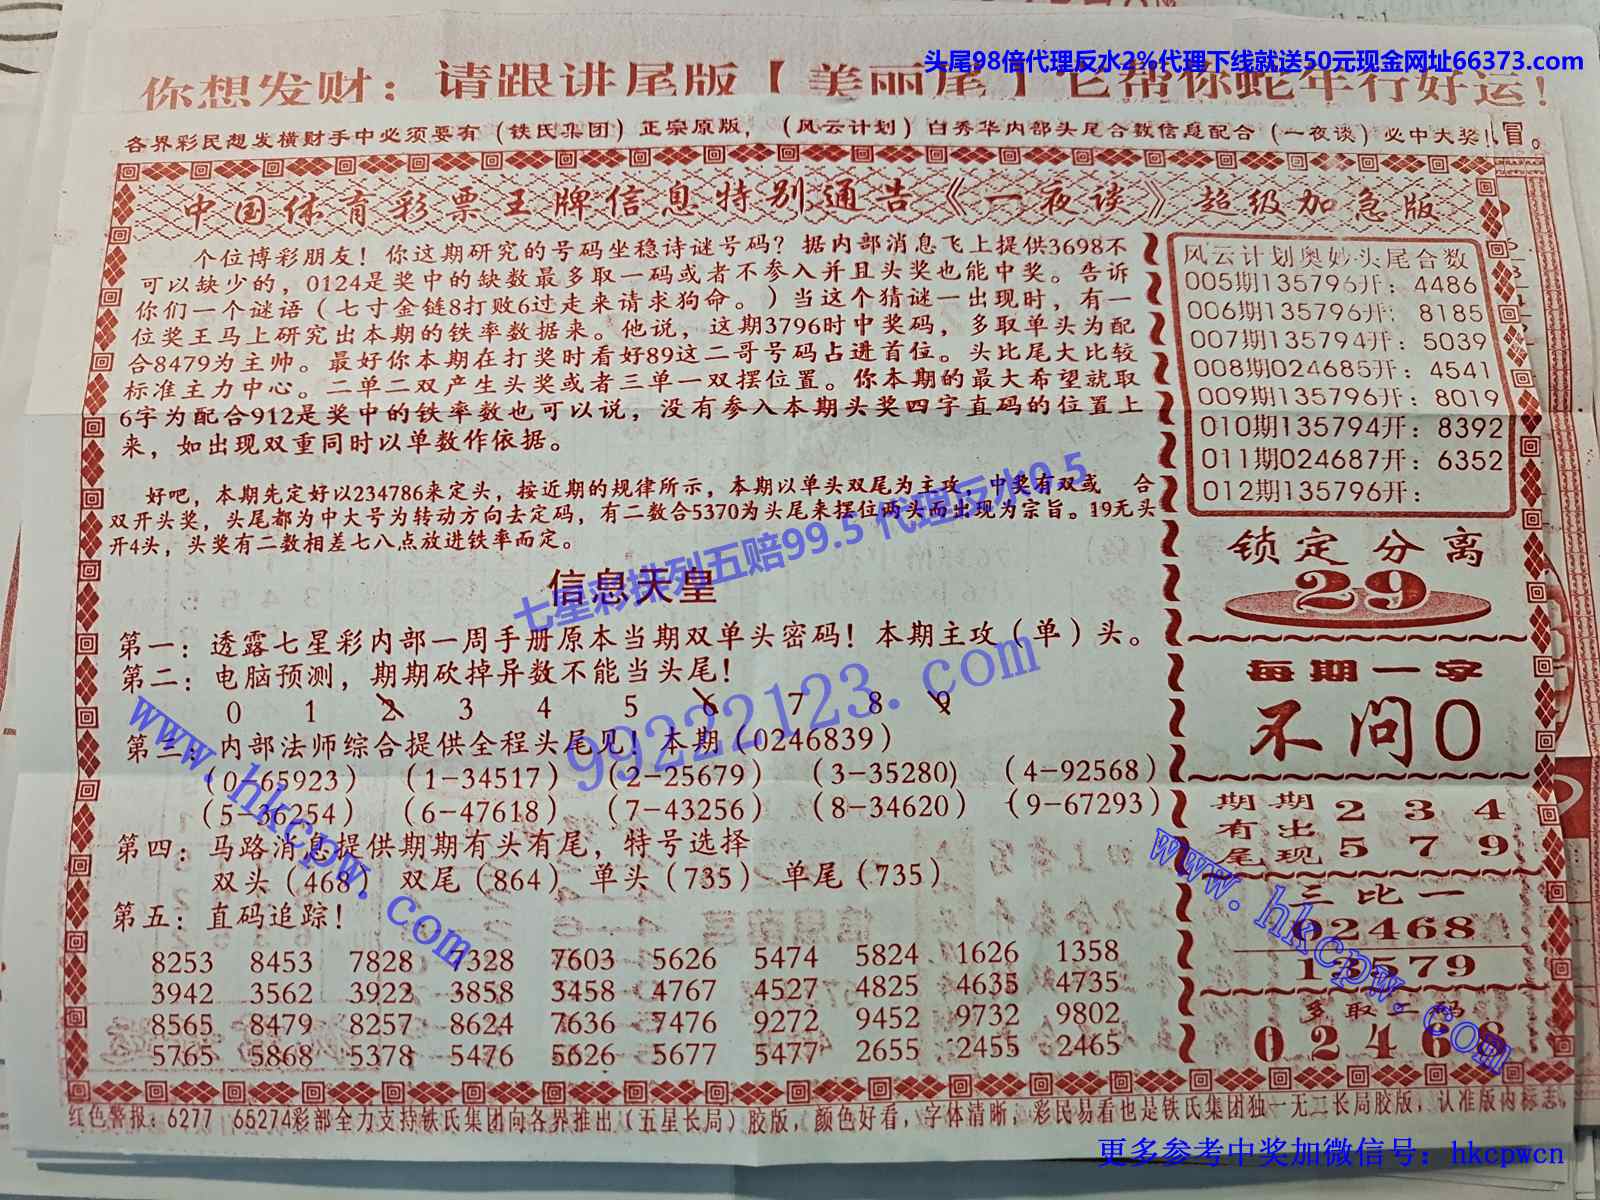 头尾98倍代理反水2%代理下线就送50元现金网址66373.com
你想发财：请跟讲尾版【美丽尾】它帮你蛇年行好运！
各界彩民想发横财手中必须要有（铁氏集团）正宗原版，（风云计划）白秀华内部头尾合数信息配合（一夜谈）必中大奖！冒。
中国体育彩票王牌信息特别通告《一夜谈》超级加急版
个位博彩朋友！你这期研究的号码坐稳诗谜号码？据内部消息飞上提供3698不
可以缺少的，0124是奖中的缺数最多取一码或者不参入并且头奖也能中奖。告诉
你们一个谜语（七寸金链8打败6过走来请求狗命。）当这个猜谜一出现时，有一
位奖王马上研究出本期的铁率数据来。他说，这期3796时中奖码，多取单头为配
合8479为主帅。最好你本期在打奖时看好89这二哥号码占进首位。头比尾大比较
标准主力中心。二单二双产生头奖或者三单一双摆位置。你本期的最大希望就取
6字为配合912是奖中的铁率数也可以说，没有参入本期头奖四字直码的位置上
来，如出现双重同时以单数作依据。
好吧，本期先定好以234786来定头，按近期的规律所示，本期以单头双尾为主攻，中奖有双或 合
双开头奖，头尾都为中大号为转动方向去定码，有二数合5370为头尾来摆位两头而出现为宗旨。19无头
开4头，头奖有二数相差七八点放进铁率而定。
七星彩排列五赔99.5 代理反水9.5
信息天皇
第一：透露七星彩内部一周手册原本当期双单头密码！本期主攻（单）头。
第二：电脑预测，期期砍掉异数不能当头尾！
0 1 2 3 4 5 6 7 8 9
99222123.com
第三：内部法师综合提供全程头尾见！本期（0246839）
（0-65923） （1-34517） （2-25679） （3-35280） （4-92568）
（5-36254） （6-47618） （7-43256） （8-34620） （9-67293）
第四：马路消息提供期期有头有尾，特号选择
双头（468） 双尾（864） 单头（735） 单尾（735）
www.hkcpw.com
第五：直码追踪！
8253 8453 7828 7328 7603 5626 5474 5824 1626 1358
3942 3562 3922 3858 3458 4767 4527 4825 4635 4735
8565 8479 8257 8624 7636 7476 9272 9452 9732 9802
5765 5868 5378 5476 5626 5677 5477 2655 2455 2465
风云计划奥妙头尾合数
005期135796开：4486
006期135796开：8185
007期135794开：5039
008期024685开：4541
009期135796开：8019
010期135794开：8392
011期024687开：6352
012期135796开：
锁定分离
29
每期一字
不问0
期期 2 3 4
有出
尾现 5 7 9
三比一
02468
13579
www.hkcpw.com
多取二码
02468
红色警报：6277 65274彩部全力支持铁氏集团向各界推出（五星长局）胶版，颜色好看，字体清晰，彩民易看也是铁氏集团独一无二长局胶版，认准版内标志，
更多参考中奖加微信号：hkcpwcn